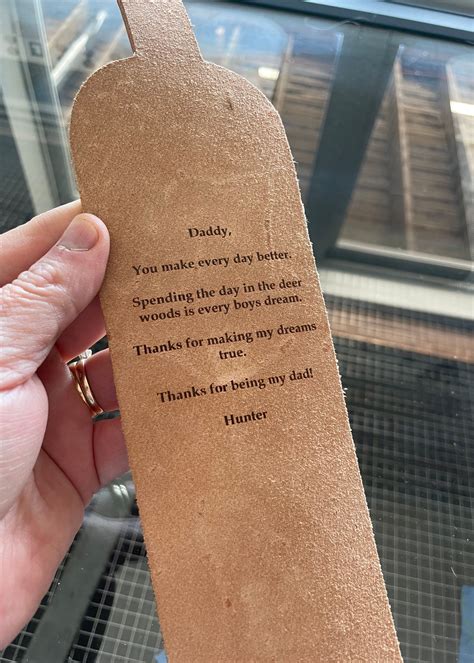 Daddy,
You make every day better.
Spending the day in the deer
woods is every boys dream.
Thanks for making my dreams
true.
Thanks for being my dad!
Hunter